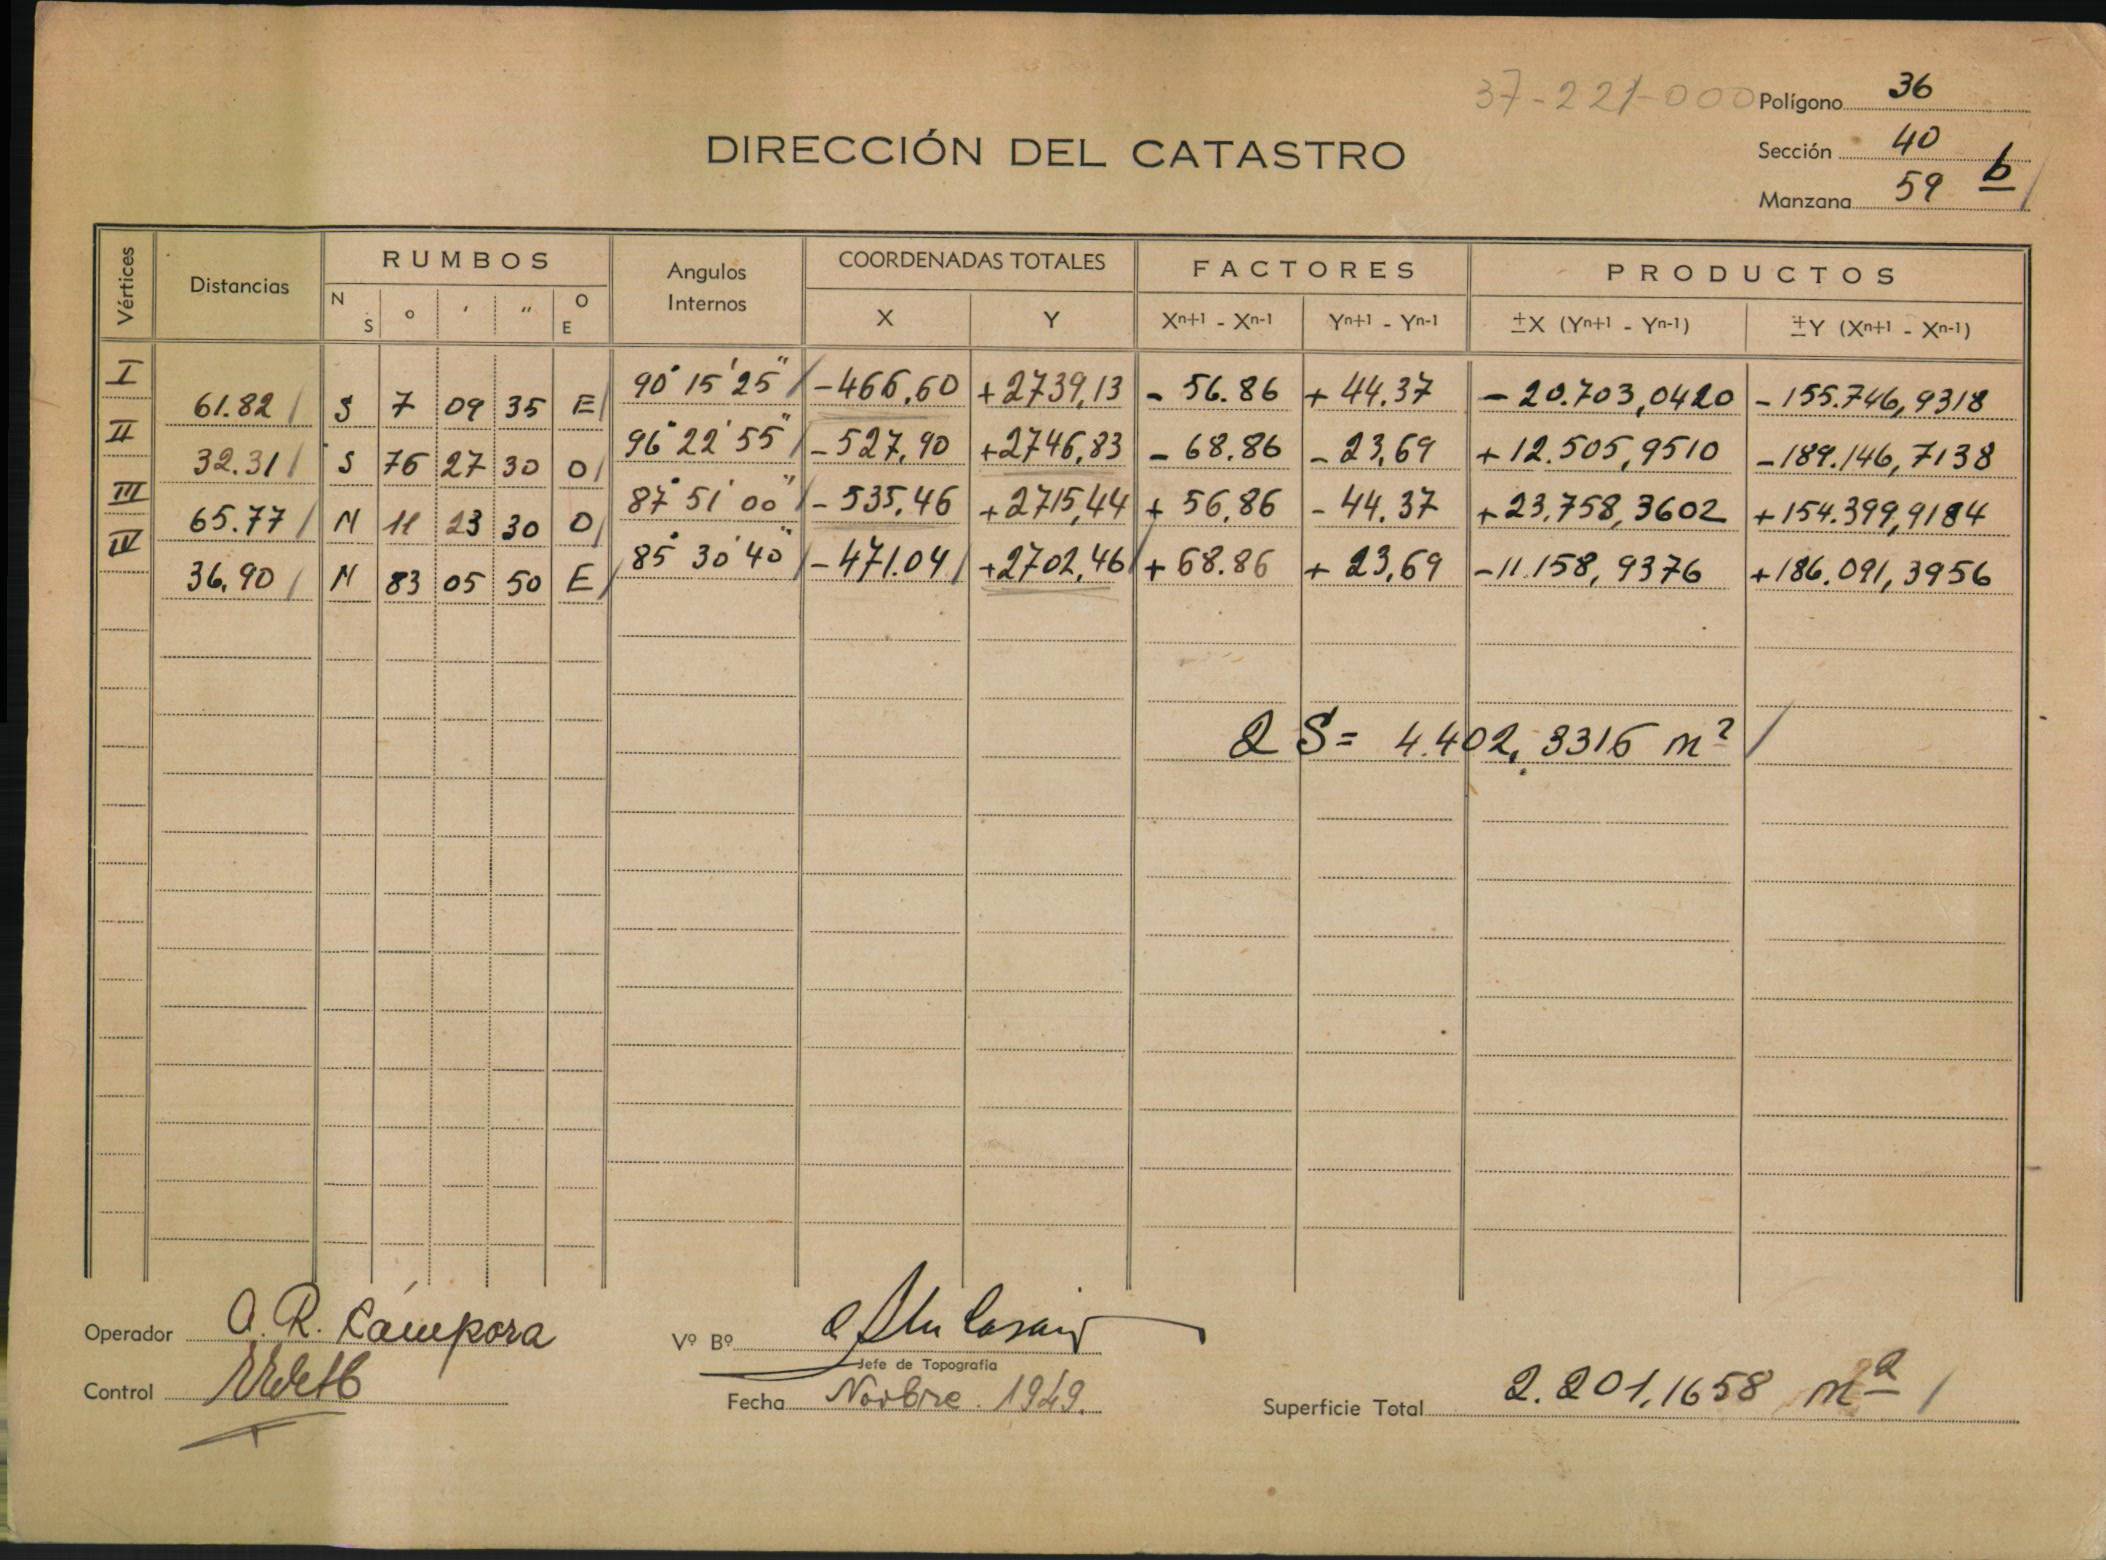 37-221-000 Polígono 36
Sección 40
DIRECCIÓN DEL CATASTRO
Manzana 59 b
Vértices Distancias RUMBOS Angulos Internos COORDENADAS TOTALES FACTORES PRODUCTOS
N S ° ' " O E X Y Xn+1 - Xn-1 Yn+1 - Yn-1 ±X (Yn+1 - Yn-1) ±Y (Xn+1 - Xn-1)
I 90° 15' 25" -466,60 +2739,13 - 56.86 + 44.37 - 20.703,0420 -155.746,9318
61.82 S 7 09 35 E
II 96° 22' 55" -527,90 +2746,83 - 68.86 - 23,69 + 12.505,9510 -189.146,7138
32.31 S 76 27 30 O
III 87° 51' 00" - 535,46 +2715,44 + 56,86 - 44.37 +23.758,3602 +154.399,9184
65.77 N 11 23 30 O
IV 85° 30' 40" -471.04 +2702,46 + 68.86 + 23,69 -11.158,9376 +186.091,3956
36,90 N 83 05 50 E
2 S = 4.402,3316 m2
Operador A. R. Cámpora Vº Bº
Jefe de Topografía
Control Fecha Novbre. 1949. Superficie Total 2.201,1658 m2